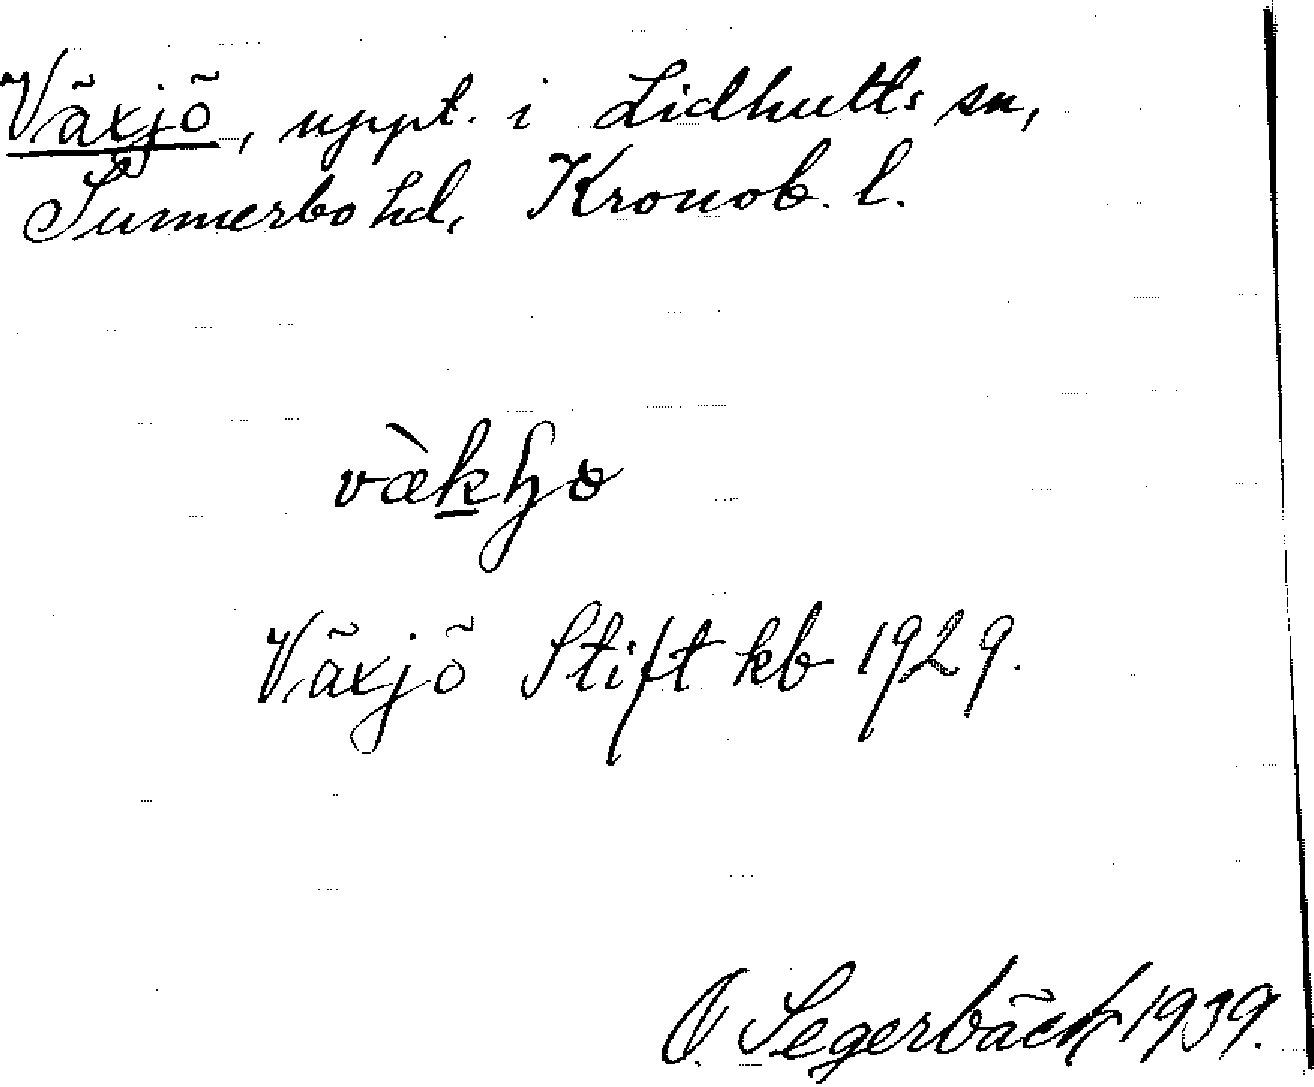 Växjö, uppt. i Lidhults sn,
Sunnerbo hd, Kronob. l.
Växjö Stift kb 1929.
Segerbäck 1939.